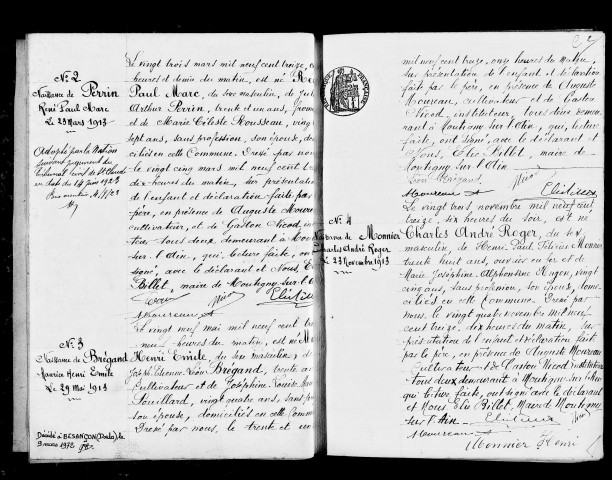 N° 2
Naissance de Perrin
René Paul Marc
Le 23 Mars 1913
Adopté par la Nation
suivant jugement du
tribunal civil de St Claude
en date du 14 juin 1923
Le vingt trois mars mil neuf cent treize,
heures et demie du matin, est né
Paul Marc, du sexe masculin, de
Arthur Perrin, trente et un ans,
et de Marie Céleste Rousseau, vingt
sept ans, sans profession, son épouse, do
miciliés en cette Commune. Dressé par nous
le vingt cinq mars mil neuf cent
dix heures du matin, sur présentation
de l'enfant et déclaration faite par
père, en présence de Auguste Moureau
cultivateur, et de Gaston Nicod, ins
tous deux, demeurant à Mou
sur l'Ain, qui, lecture faite, ont
signé, avec le déclarant et Nous
Billet, maire de Montigny sur l'
Moureau A
N° 3
Naissance de Brégand
Maurice Henri Emile
Le 29 Mai 1913
Décédé à BESANÇON (Doubs), le
9 mars 1972
et vingt neuf mai mil neuf cent
heures du matin, est né
Henri Emile, du sexe masculin, de
Joseph Etienne Léon Brégand, trente
Cultivateur et de Joséphine Louise
vingt quatre ans, sans
son épouse, domiciliés en cette Comm
Dressé par nous, le trente et un
mil neuf cent treize, onze heures du matin,
sur présentation de l'enfant et déclaration
faite par le père, en présence de Auguste
Moureau, cultivateur et de Gaston
Nicod, instituteur, tous deux demeu
rant à Montigny sur l'Ain, qui, lecture
faite, ont signé, avec le déclarant et
Nous, Elie Billet, maire de
Montigny sur l'Ain
Léon Brégand
Moureau A
N° 4
Naissance de Monnier
Charles André Roger
Le 23 Novembre 1913
Le vingt trois novembre mil neuf cent
treize, six heures du soir, est né
Charles André Roger, du sexe
masculin, de Henri Paul Félicien Monnier
trente huit ans, ouvrier en fer et de
Marie Joséphine Alphonsine vingt
cinq ans, sans profession, son épouse, domi
ciliés en cette Commune. Dressé par
nous, le vingt quatre novembre mil neuf
cent treize, dix heures du matin, sur
présentation de l'enfant et déclaration faite
par le père, en présence de Auguste Moureau
Cultivateur et de Gaston Nicod instituteur
tous deux demeurant à Montigny sur l'Ain
qui lecture faite, ont signé avec le déclarant
et Nous Elie Billet, Maire de Montigny
sur l'Ain.
Moureau A
Monnier Henri